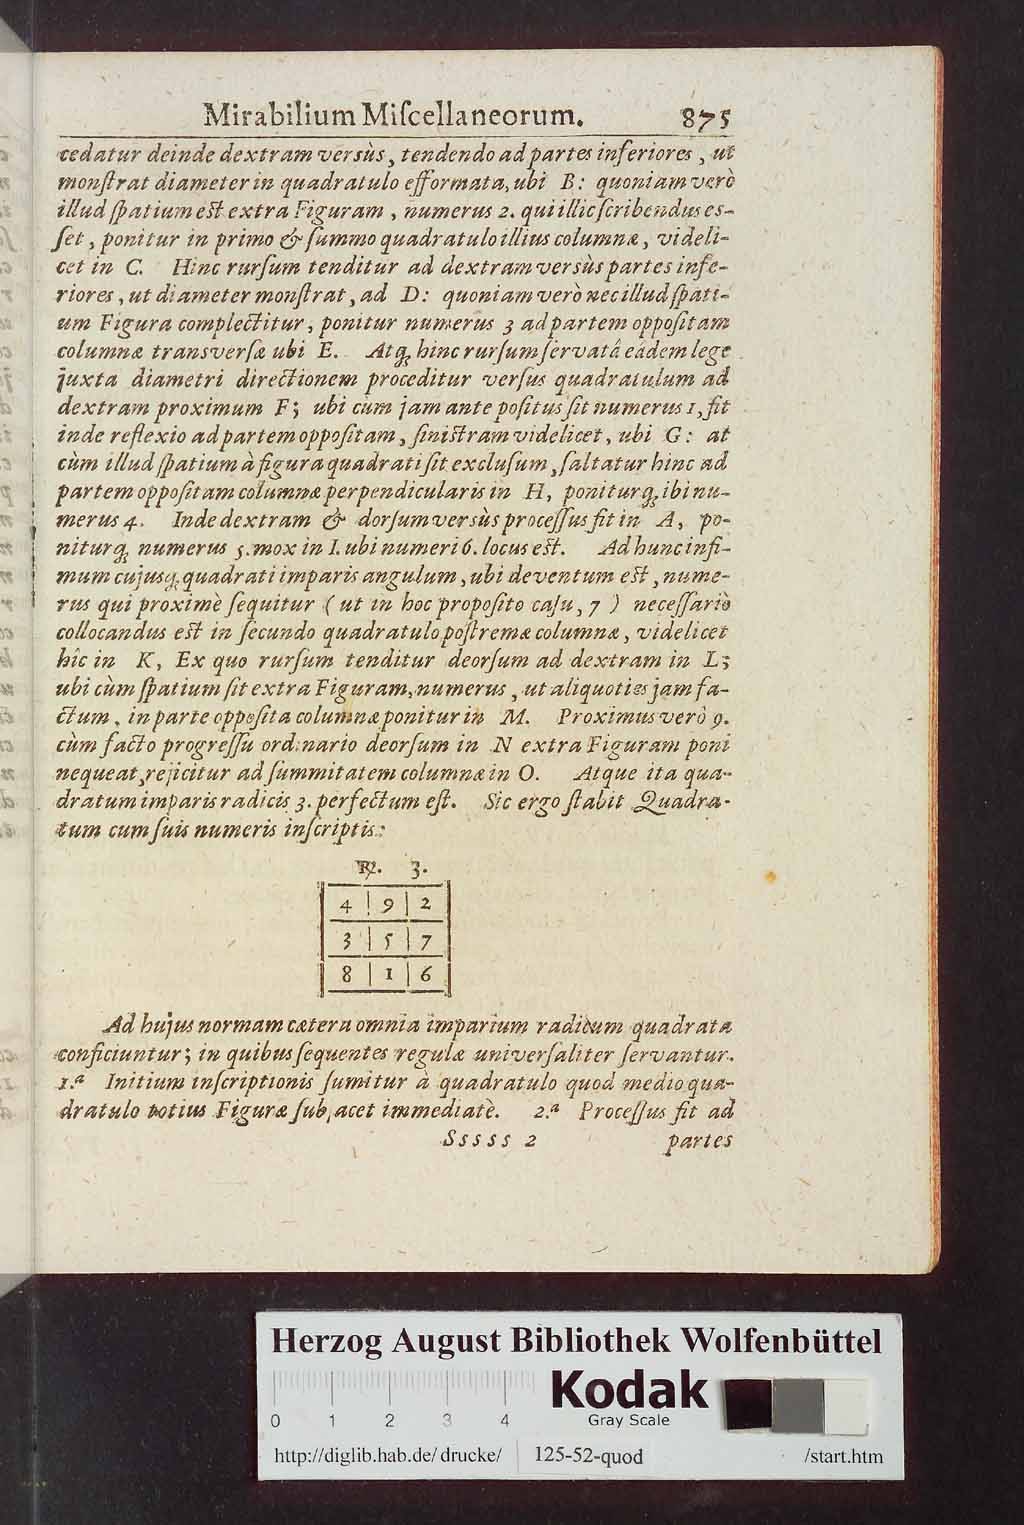 Mirabilium Miſcellaneorum. 875
cedatur deinde dextram versùs, tendendo ad partes inferiores, ut
monſtrat diameter in quadratulo efformata, ubi B: quoniam verò
illud ſpatium eſt extra Figuram, numerus 2. qui illic ſcribendus es-
ſet, ponitur in primo & ſummo quadratulo illius columnæ, videli-
cet in C. Hinc rurſum tenditur ad dextram versùs partes infe-
riores, ut diameter monſtrat, ad D: quoniam verò nec illud ſpati-
um Figura complectitur, ponitur numerus 3 ad partem oppoſitam
columnæ transverſæ ubi E. Atq; hinc rurſum ſervatâ eâdem lege
juxta diametri directionem proceditur verſus quadratulum ad
dextram proximum F; ubi cùm jam ante poſitus ſit numerus 1, fit
inde reflexio ad partem oppoſitam, ſiniſtram videlicet, ubi G: at
cùm illud ſpatium à figura quadrati ſit excluſum, ſaltatur hinc ad
partem oppoſitam columnæ perpendicularis in H, poniturq; ibi nu-
merus 4. Inde dextram & dorſum versùs proceſſus fit in A, po-
niturq; numerus 5. mox in I. ubi numeri 6. locus eſt. Ad hunc infi-
mum cujusq; quadrati imparis angulum, ubi deventum eſt, nume-
rus qui proximè ſequitur (ut in hoc propoſito caſu, 7) neceſſariò
collocandus eſt in ſecundo quadratulo poſtremæ columnæ, videlicet
hîc in K, Ex quo rurſum tenditur deorſum ad dextram in L;
ubi cùm ſpatium ſit extra Figuram, numerus, ut aliquoties jam fa-
ctum, in parte oppoſita columnæ ponitur in M. Proximus verò 9.
cùm facto progreſſu ordinario deorſum in N extra Figuram poni
nequeat, rejicitur ad ſummitatem columnæ in O. Atque ita qua-
dratum imparis radicis 3. perfectum eſt. Sic ergo ſtabit Quadra-
tum cum ſuis numeris inſcriptis:
℞. 3.
4 | 9 | 2
3 | 5 | 7
8 | 1 | 6
Ad hujus normam cætera omnia imparium radicum quadrata
conficiuntur; in quibus ſequentes regulæ univerſaliter ſervantur.
1.ª Initium inſcriptionis ſumitur à quadratulo quod medio qua-
dratulo totius Figuræ ſubjacet immediatè. 2.ª Proceſſus fit ad
Sssss 2 partes
Herzog August Bibliothek Wolfenbüttel
Kodak
Gray Scale
0 1 2 3 4
http://diglib.hab.de/drucke/ 125-52-quod /start.htm